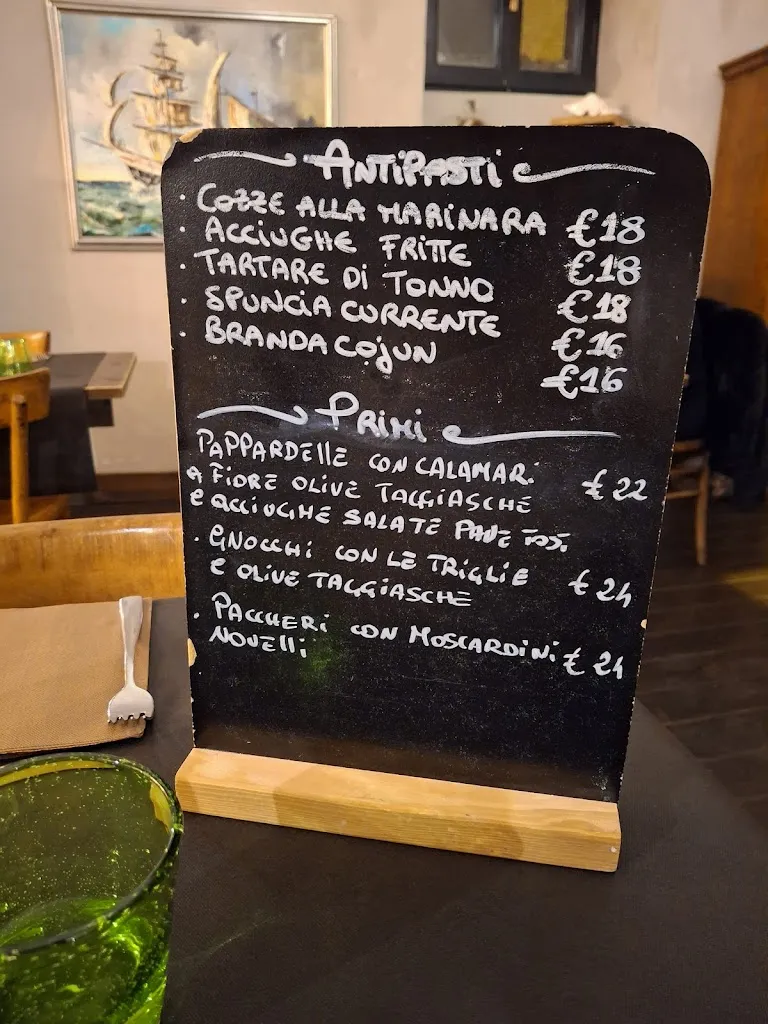 ANTIPASTI
· COZZE ALLA MARINARA €18
· ACCIUGHE FRITTE €18
· TARTARE DI TONNO €18
· SPUNCIA CURRENTE €16
· BRANDACOJUN €16
PRIMI
PAPPARDELLE CON CALAMARi €22
A FIORE OLIVE TAGGIASCHE
E ACCIUGHE SALATE PANE TOST.
· GNOCCHI CON LE TRIGLIE €24
E OLIVE TAGGIASCHE
· PACCHERI CON MOSCARDINI €24
NOVELLI